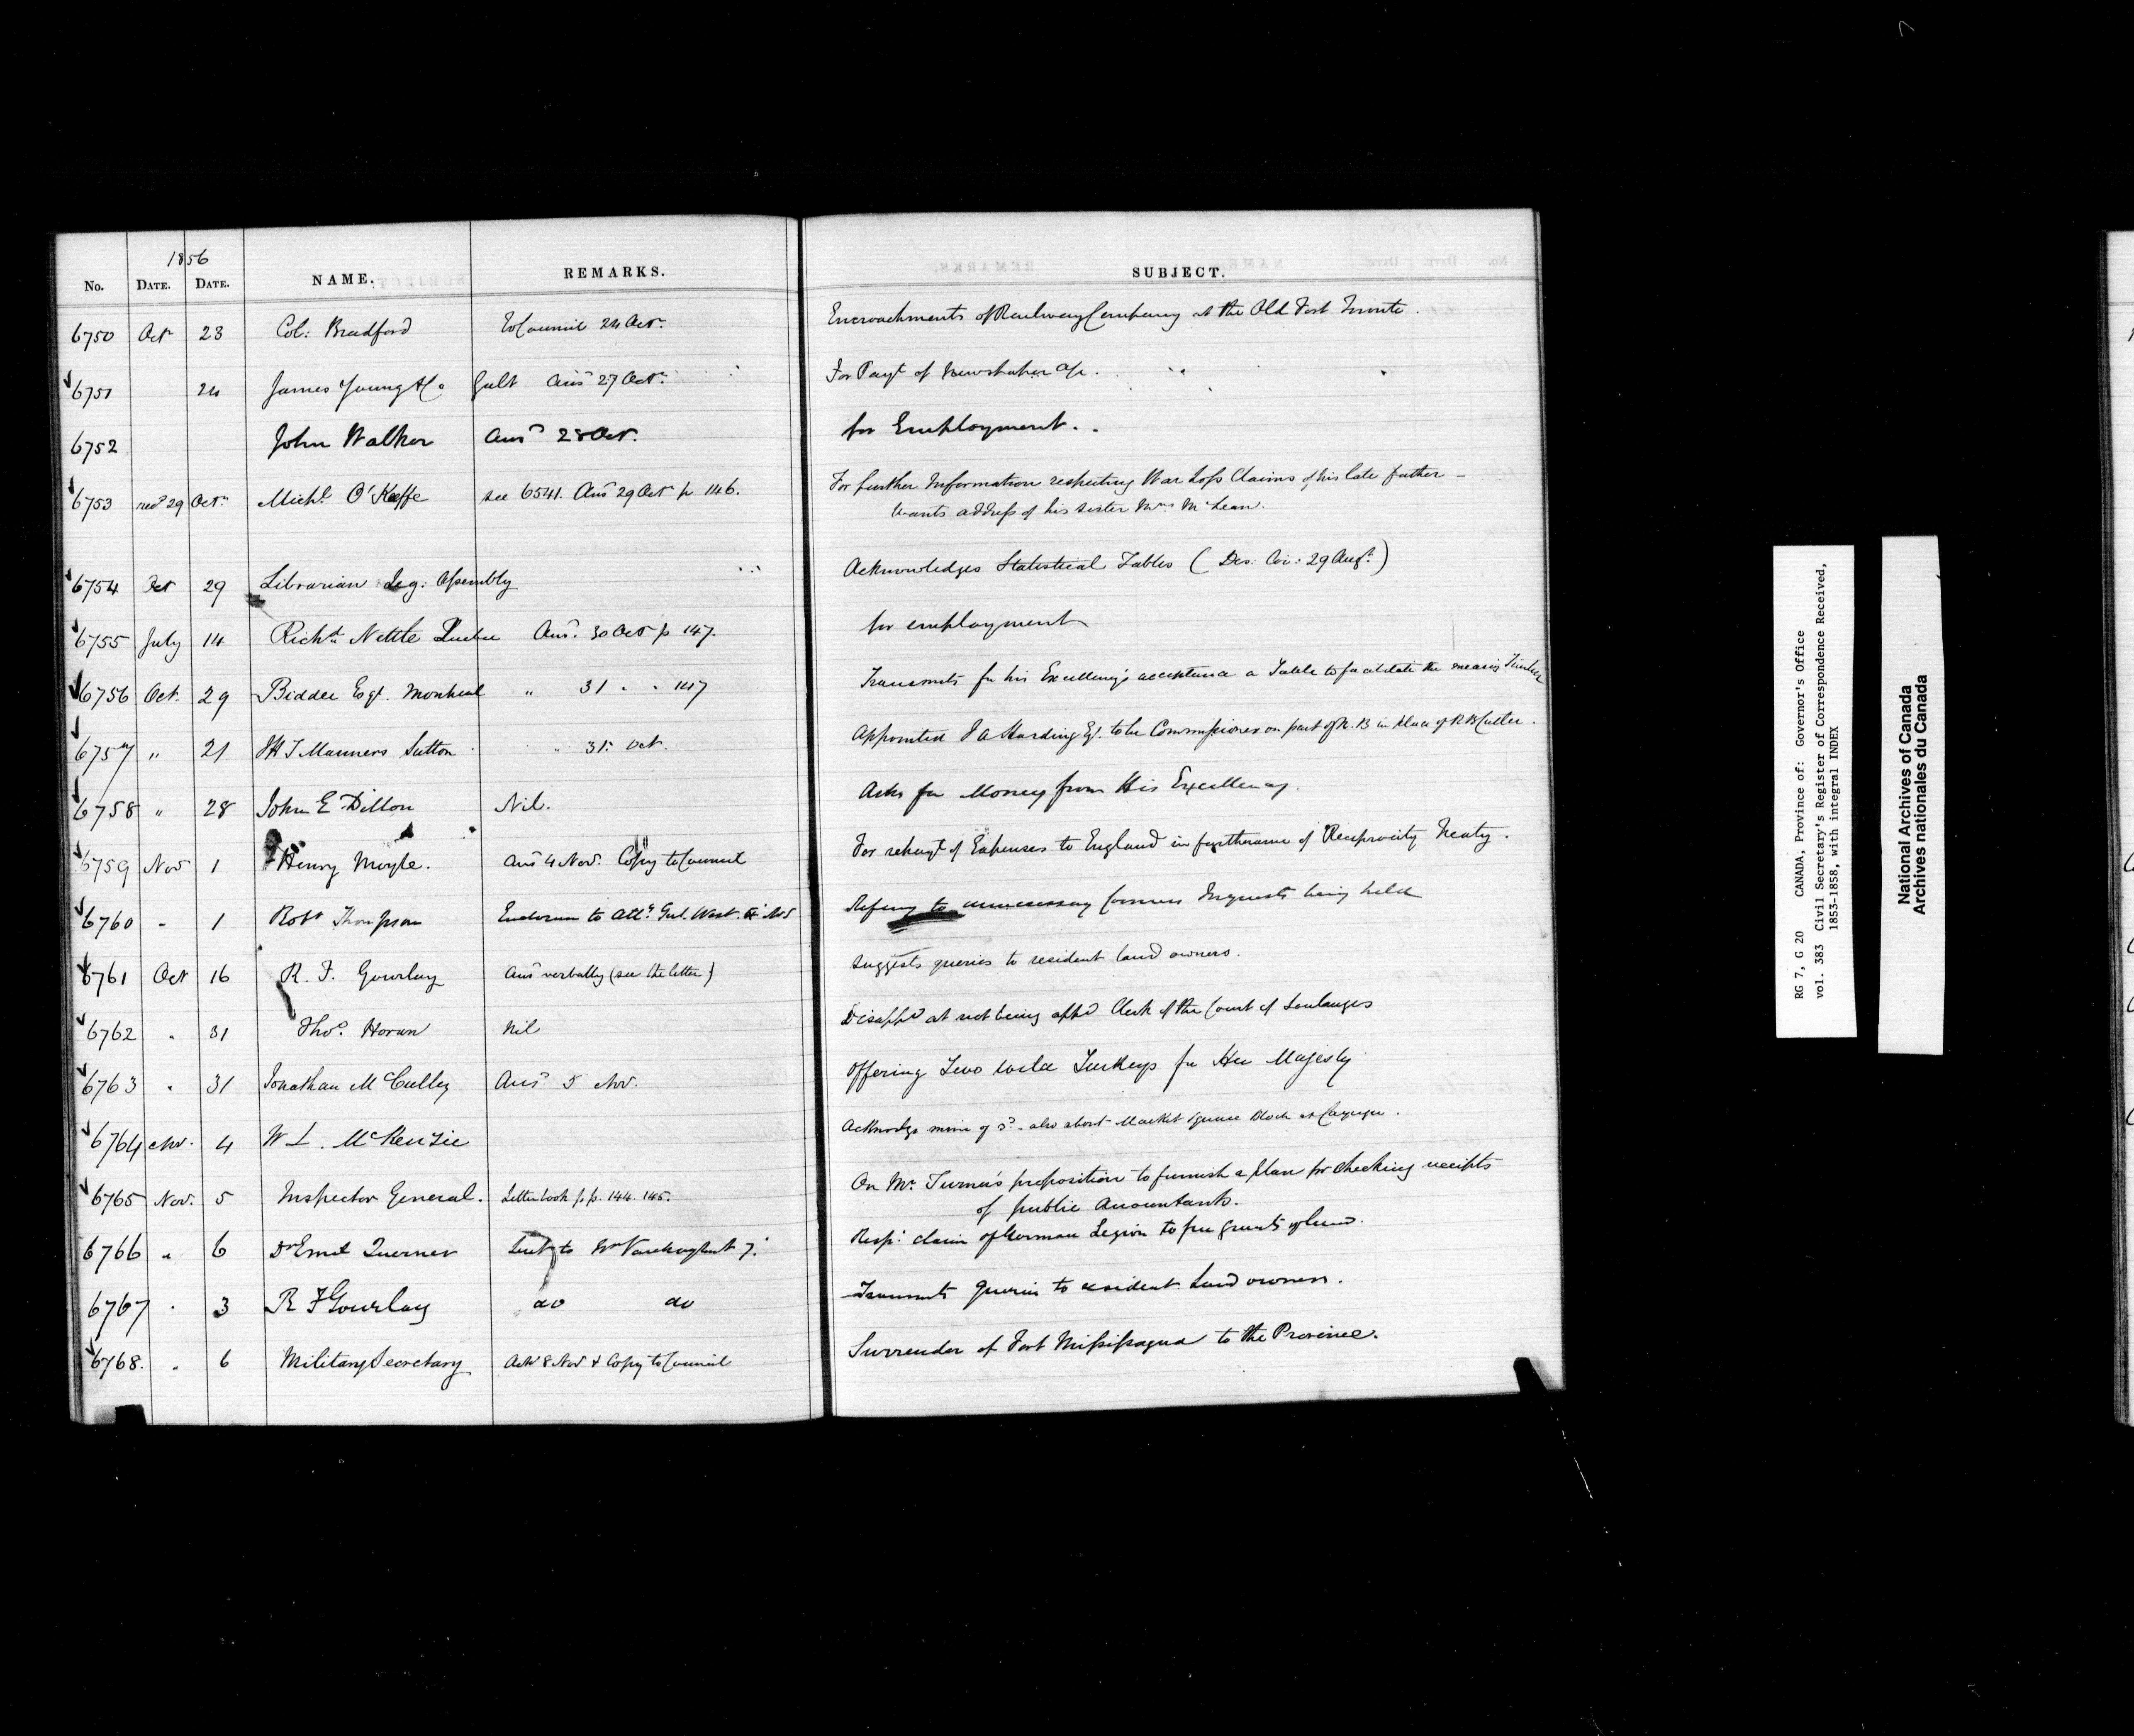 1856
No. DATE. DATE. NAME. REMARKS. SUBJECT.
6750 Oct 23 Col: Bradford To Council 24 Oct. Encroachments of Railway Company at the Old Fort Toronto.
6751 24 James Young & Co Galt Ansd 27 Oct. For Payt of Newspaper a/c.
6752 John Walker Ansd 28 Oct. for Employment.
6753 recd 29 Oct. Michl O'Keeffe see 6541. Ansd 29 Oct p 146. For further Information respecting War Loss Claims of his late father –
Wants address of his sister Mrs McLean.
6754 Oct 29 Librarian Leg: Assembly Acknowledges Statistical Tables ( Des. Cir: 29 Augt. )
6755 July 14 Richd Nettle Quebec Ansd. 30 Oct p 147. for employment
6756 Oct. 29 Biddee Esqr. Montreal " 31 " " 147 Transmits for his Excellency's acceptance a Table to facilitate the measg Timber
6757 " 21 J H T Manners Sutton " 31. Oct. Appointed J A Harding Esq. to be Commissioner on part of N.B in place of R B Cutler.
6758 " 28 John E Dillon Nil. Asks for Money from His Excellency.
6759 Nov 1 Henry Moyle. Ansd 4 Nov. Copy to Council For repayt of Expenses to England in furtherance of Reciprocity Treaty.
6760 " 1 Robt Thompson to Atty. Genl. West. Nov Refering to unnecessary Coroners Inquests being held
6761 Oct 16 R. F. Gourlay Ansd verbally (see the letter) Suggests queries to resident land owners.
6762 " 31 Thos. Horan Nil Disappd at not being appd Clerk of the Court of Soulanges
6763 " 31 Jonathan McCulley Ansd. 5 Nov. Offering Two wild Turkeys for Her Majesty
6764 Nov. 4 W L. McKenzie Acknowlgs mine of 3d – also about Market Square Block at Cayuga.
6765 Nov. 5 Inspector General. Letter book p.p. 144. 145. On Mr. Turner's proposition to furnish a plan for checking receipts
of public Accountants.
6766 " 6 Dr Emil Querner Sent to Mr Vankoughnet 7. Resp: claim of German Legion to free grants of land.
6767 " 3 R F Gourlay do do Transmits queries to resident Land owners.
6768. " 6 Military Secretary Ackd 8 Nov & Copy to Council Surrender of Fort Missisagua to the Province.
RG 7, G 20 CANADA, Province of: Governor's Office
vol. 383 Civil Secretary's Register of Correspondence Received,
1853-1858, with integral INDEX
National Archives of Canada
Archives nationales du Canada